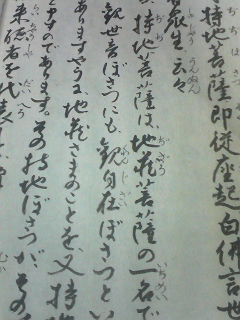 持地菩薩即従座起白佛言世
衆生云々
持地菩薩は、地蔵菩薩の一名で
観世音ぼさつにも、観自在ぼさつとい
ありますやうに、地蔵さまのことを、又持
すのであります。その持地ぼさつが、その
来聴者を代表し